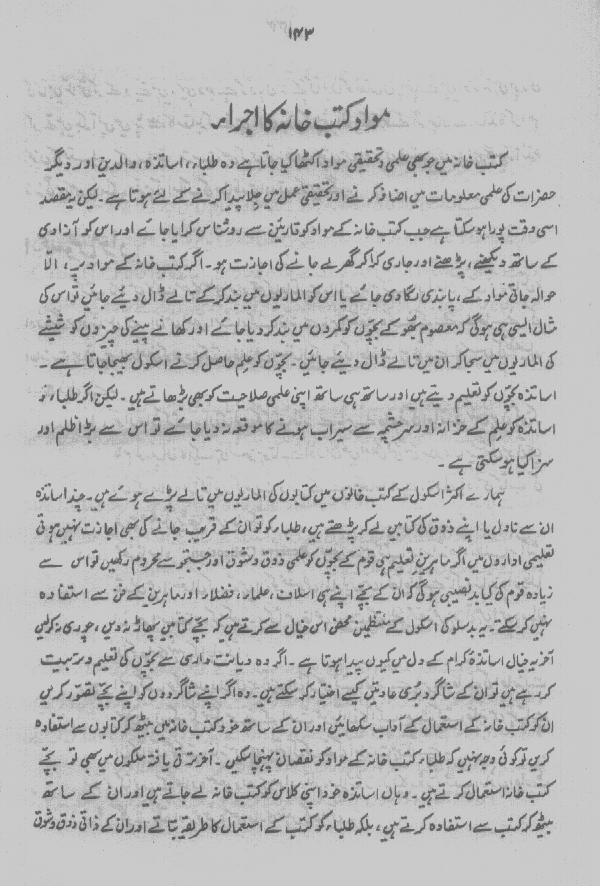 ۱۴۳
مواد کتب خانہ کا اجراء
کتب خانہ میں جو بھی علمی و تحقیقی مواد اکٹھا کیا جاتا ہے وہ طلباء، اساتذہ، والدین اور دیگر
حضرات کی علمی معلومات میں اضافہ کرنے اور تحقیقی عمل میں جِلا پیدا کرنے کے لئے ہوتا ہے۔ لیکن یہ مقصد
اسی وقت پورا ہو سکتا ہے جب کتب خانہ کے مواد کو قارئین سے روشناس کرایا جائے اور اس کو آزادی
کے ساتھ دیکھنے، پڑھنے اور جاری کرا کر گھر لے جانے کی اجازت ہو۔ اگر کتب خانہ کے مواد پر، الّا
حوالہ جاتی مواد کے، پابندی لگا دی جائے یا اس کو الماریوں میں بند کر کے تالے ڈال دیئے جائیں تو اس کی
مثال ایسی ہی ہوگی کہ معصوم بھوکے بچّوں کو کمروں میں بند کر دیا جائے اور کھانے پینے کی چیزوں کو شیشے
کی الماریوں میں سجا کر ان میں تالے ڈال دیئے جائیں۔ بچّوں کو علم حاصل کرنے اسکول بھیجا جاتا ہے۔
اساتذہ بچّوں کو تعلیم دیتے ہیں اور ساتھ ہی ساتھ اپنی علمی صلاحیت کو بھی بڑھاتے ہیں۔ لیکن اگر طلباء و
اساتذہ کو علم کے خزانہ اور سرچشمہ سے سیراب ہونے کا موقعہ نہ دیا جائے تو اس سے بڑا ظلم اور
سزا کیا ہو سکتی ہے۔
ہمارے اکثر اسکول کے کتب خانوں میں کتابوں کی الماریوں میں تالے پڑے ہوئے ہیں۔ چند اساتذہ
ان سے ناول یا اپنے ذوق کی کتابیں لے کر پڑھتے ہیں، طلباء کو تو ان کے قریب جانے کی بھی اجازت نہیں ہوتی
تعلیمی اداروں میں اگر ماہرینِ تعلیم ہی قوم کے بچّوں کو علمی ذوق و شوق اور جستجو سے محروم رکھیں تو اس سے
زیادہ قوم کی کیا بدنصیبی ہوگی کہ ان کے بچّے اپنے ہی اسلاف، علماء، فضلاء اور ماہرین کے فن سے استفادہ
نہیں کر سکتے۔ یہ بدسلوکی اسکول کے منتظمین محض اس خیال سے کرتے ہیں کہ بچّے کتابیں پھاڑ نہ دیں، چوری نہ کر لیں
آخر یہ خیال اساتذہ کرام کے دل میں کیوں پیدا ہوتا ہے۔ اگر وہ دیانت داری سے بچّوں کی تعلیم و تربیت
کر رہے ہیں تو ان کے شاگرد بُری عادتیں کیسے اختیار کر سکتے ہیں۔ وہ اگر اپنے شاگردوں کو اپنے بچّے تصوّر کریں
ان کو کتب خانہ کے استعمال کے آداب سکھائیں اور ان کے ساتھ خود کتب خانہ میں بیٹھ کر کتابوں سے استفادہ
کریں تو کوئی وجہ نہیں کہ طلباء کتب خانہ کے مواد کو نقصان پہنچا سکیں۔ آخر ترقی یافتہ ملکوں میں بھی تو بچّے
کتب خانہ استعمال کرتے ہیں۔ وہاں اساتذہ خود اپنی کلاس کو کتب خانہ لے جاتے ہیں اور ان کے ساتھ
بیٹھ کر کتب سے استفادہ کرتے ہیں، بلکہ طلباء کو کتب کے استعمال کا طریقہ بتاتے اور ان کے ذاتی ذوق و شوق